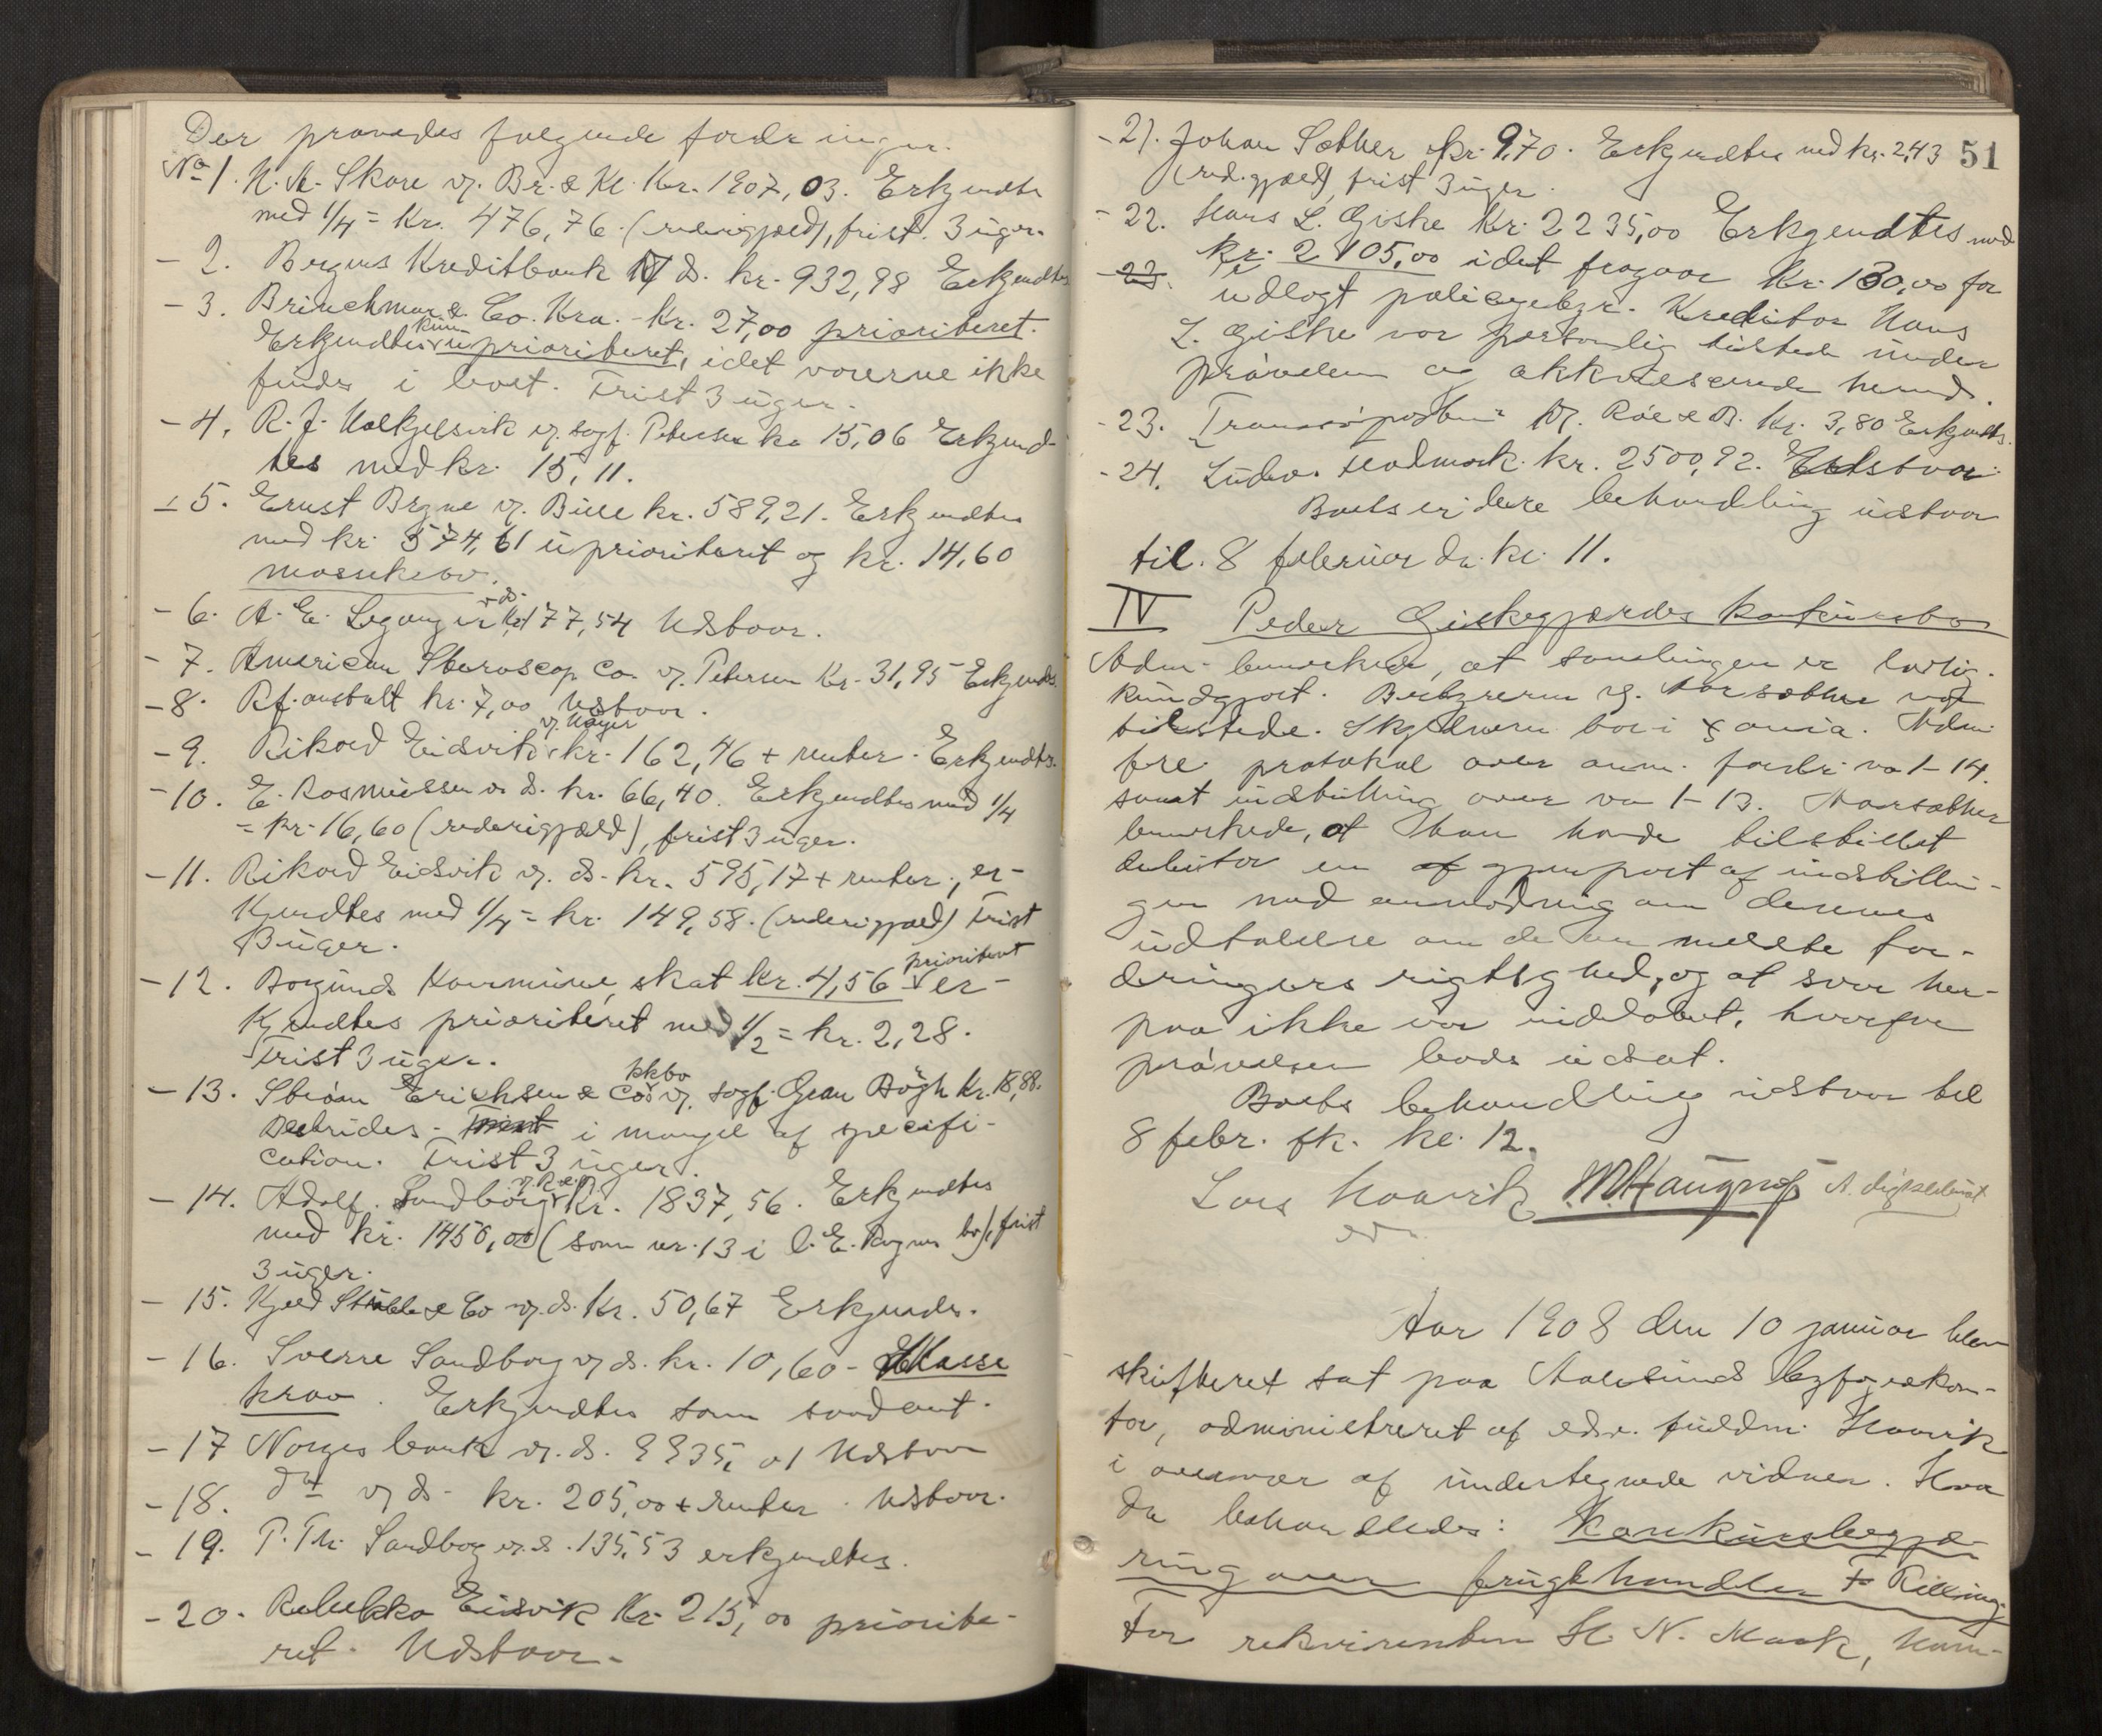 Der prøvedes følgende fordringer.
No 1. N. A. Skare vj. Br. & Kl. kr. 1907,03. Erkjendtes
med 1/4 = kr. 476,76 (rederigjæld), frist 3 uger.
- 2. Bergens Kreditbank vj ds. kr. 932,98 Erkjendtes
- 3. Brinchman & Co. Kra. - kr. 27,00 prioriteret.
Erkjendtes kun uprioriteret, idet varerne ikke
findes i boet. Frist 3 uger.
- 4. R. J. vj. sagf. Petersen kr 15,06 Erkjend-
tes med kr. 15,11.
- 5. Ernst Bryne vj. Bull kr. 589,21. Erkjendtes
med kr. 574,61 uprioriteret og kr. 14,60
massekrav.
- 6. A. E. Leganger v. ds. kr. 177,54 Udstaar.
- 7. American Steroscop Co. vj. Petersen kr. 31,95 Erkjendtes.
- 8. Rf. anstalt kr. 7,00 Udstaar.
- 9. Rikard Eidsvik vj. kr. 162,46 + renter. Erkjendtes.
- 10. E. Rasmussen v. ds. kr. 66,40. Erkjendtes med 1/4
= kr. 16,60 (rederigjæld), frist 3 uger.
- 11. Rikard Eidsvik vj. ds. kr. 595,17 + renter, er-
kjendtes med 1/4 = kr. 149,58. (rederigjæld) Frist
3 uger.
- 12. Borgunds kommune, skat kr. 4,56 prioriteret er-
kjendtes prioriteret med 1/2 = kr. 2,28.
Frist 3 uger.
- 13. Strøm Erichsen & Co's kkbo vj. sagf. Gran Bøgh kr. 18,88.
Bestrides - i mangel af specifi-
cation. Frist 3 uger.
- 14. Adolf Sandborg kr. 1837,56. Erkjendtes
med kr. 1450,00 (som nr. 13 i bo), frist
3 uger.
- 15. Kjeld & Co vj. ds. kr. 50,67 Erkjendes.
- 16. Sverre Sandborg vj ds. kr. 10,60 - Masse
krav. Erkjendtes som saadant.
- 17 Norges bank vj. ds. 9935,01 Udstaar
- 18. do vj ds - kr. 205,00 + renter. Udstaar.
- 19. P. Th. Sandborg vj. ds. 135,53 erkjendtes.
- 20. Rebekka Eidsvik kr. 215,00 priorite-
ret. Udstaar.
51
- 21. Johan Sæther kr. 9,70. Erkjendtes med kr. 2,43
(red. gjæld), frist 3 uger.
- 22. Hans L. Giske kr. 2235,00 Erkjendtes med
kr. 2105,00 idet fragaar kr. 130,00 for
- 23. udlagt Kreditor Hans
L. Giske var personlig tilstede under
prøvelsen og akkviescerede herved.
- 23. vj. Roe & B. kr. 3,80 Erkjendtes.
- 24. Ludv. kr. 2500,92. Udstaar.
Boets videre behandling udstaar
til 8 februar ds. kl. 11.
IV Peder Giskegjærdes konkursbo
Adm. bemærkede, at samlingen er lovlig
kundgjort. Bestyreren vj. Aarsæther var
tilstede. Skyldneren bor i Xania. Adm.
fre. protokol over anm. fordr. no 1-14.
samt indstilling over no 1-13. Aarsæther
bemærkede, at han havde tilstillet
debitor en gjenpart af indstillin-
gen med anmodning om dennes
udtalelse om de anmeldte for-
dringers rigtighed, og at svar her-
paa ikke var indløbet, hvorfor
prøvelsen blev udsat.
Boets behandling udstaar til
8 febr. fk. kl. 12.
Lars Haavik
Aar 1908 den 10 januar blev
skifteret sat paa Aalesunds byfogedkon-
tor, administreret af edsv. fuldm. Haavik
i overvær af undertegnede vidner. Hvor
da behandledes: Konkursbegjæ-
ring over frugthandler F. Relling.
For rekvirenten H. N. Mask,